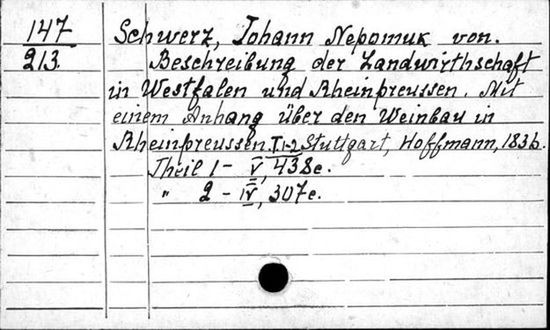 147 Schwerz, Johann Nepomuk von.
213. Beschreibung der Landwirthschaft
in Westfalen und Rheinpreussen. Mit
einem Anhang über den Weinbau in
Rheinpreussen. T.1-2 Stuttgart, Hoffmann, 1836.
Theil 1 - V, 438 e.
" 2 - IV, 307 e.